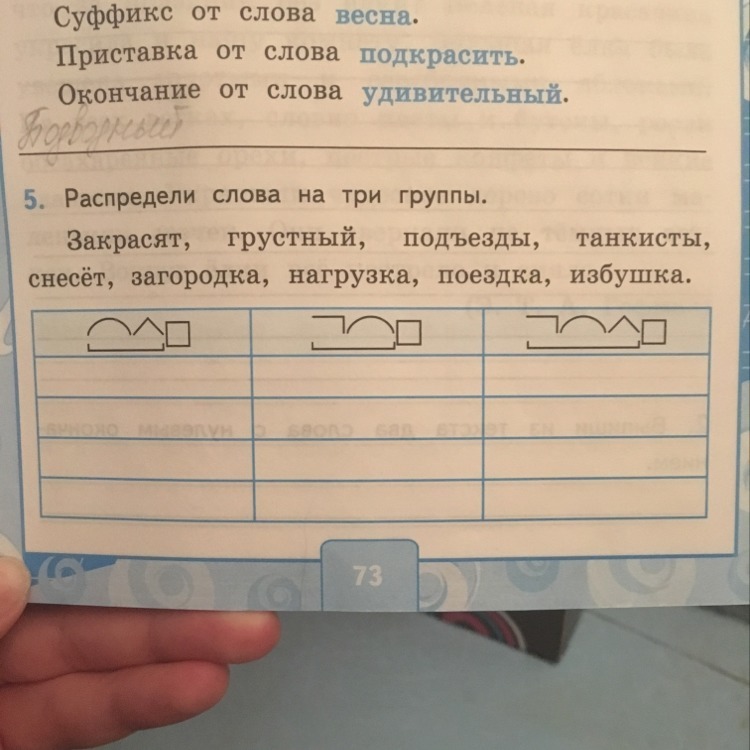 Суффикс от слова весна.
Приставка от слова подкрасить.
Окончание от слова удивительный.
Подводный
5. Распредели слова на три группы.
Закрасят, грустный, подъезды, танкисты,
снесёт, загородка, нагрузка, поездка, избушка.
73